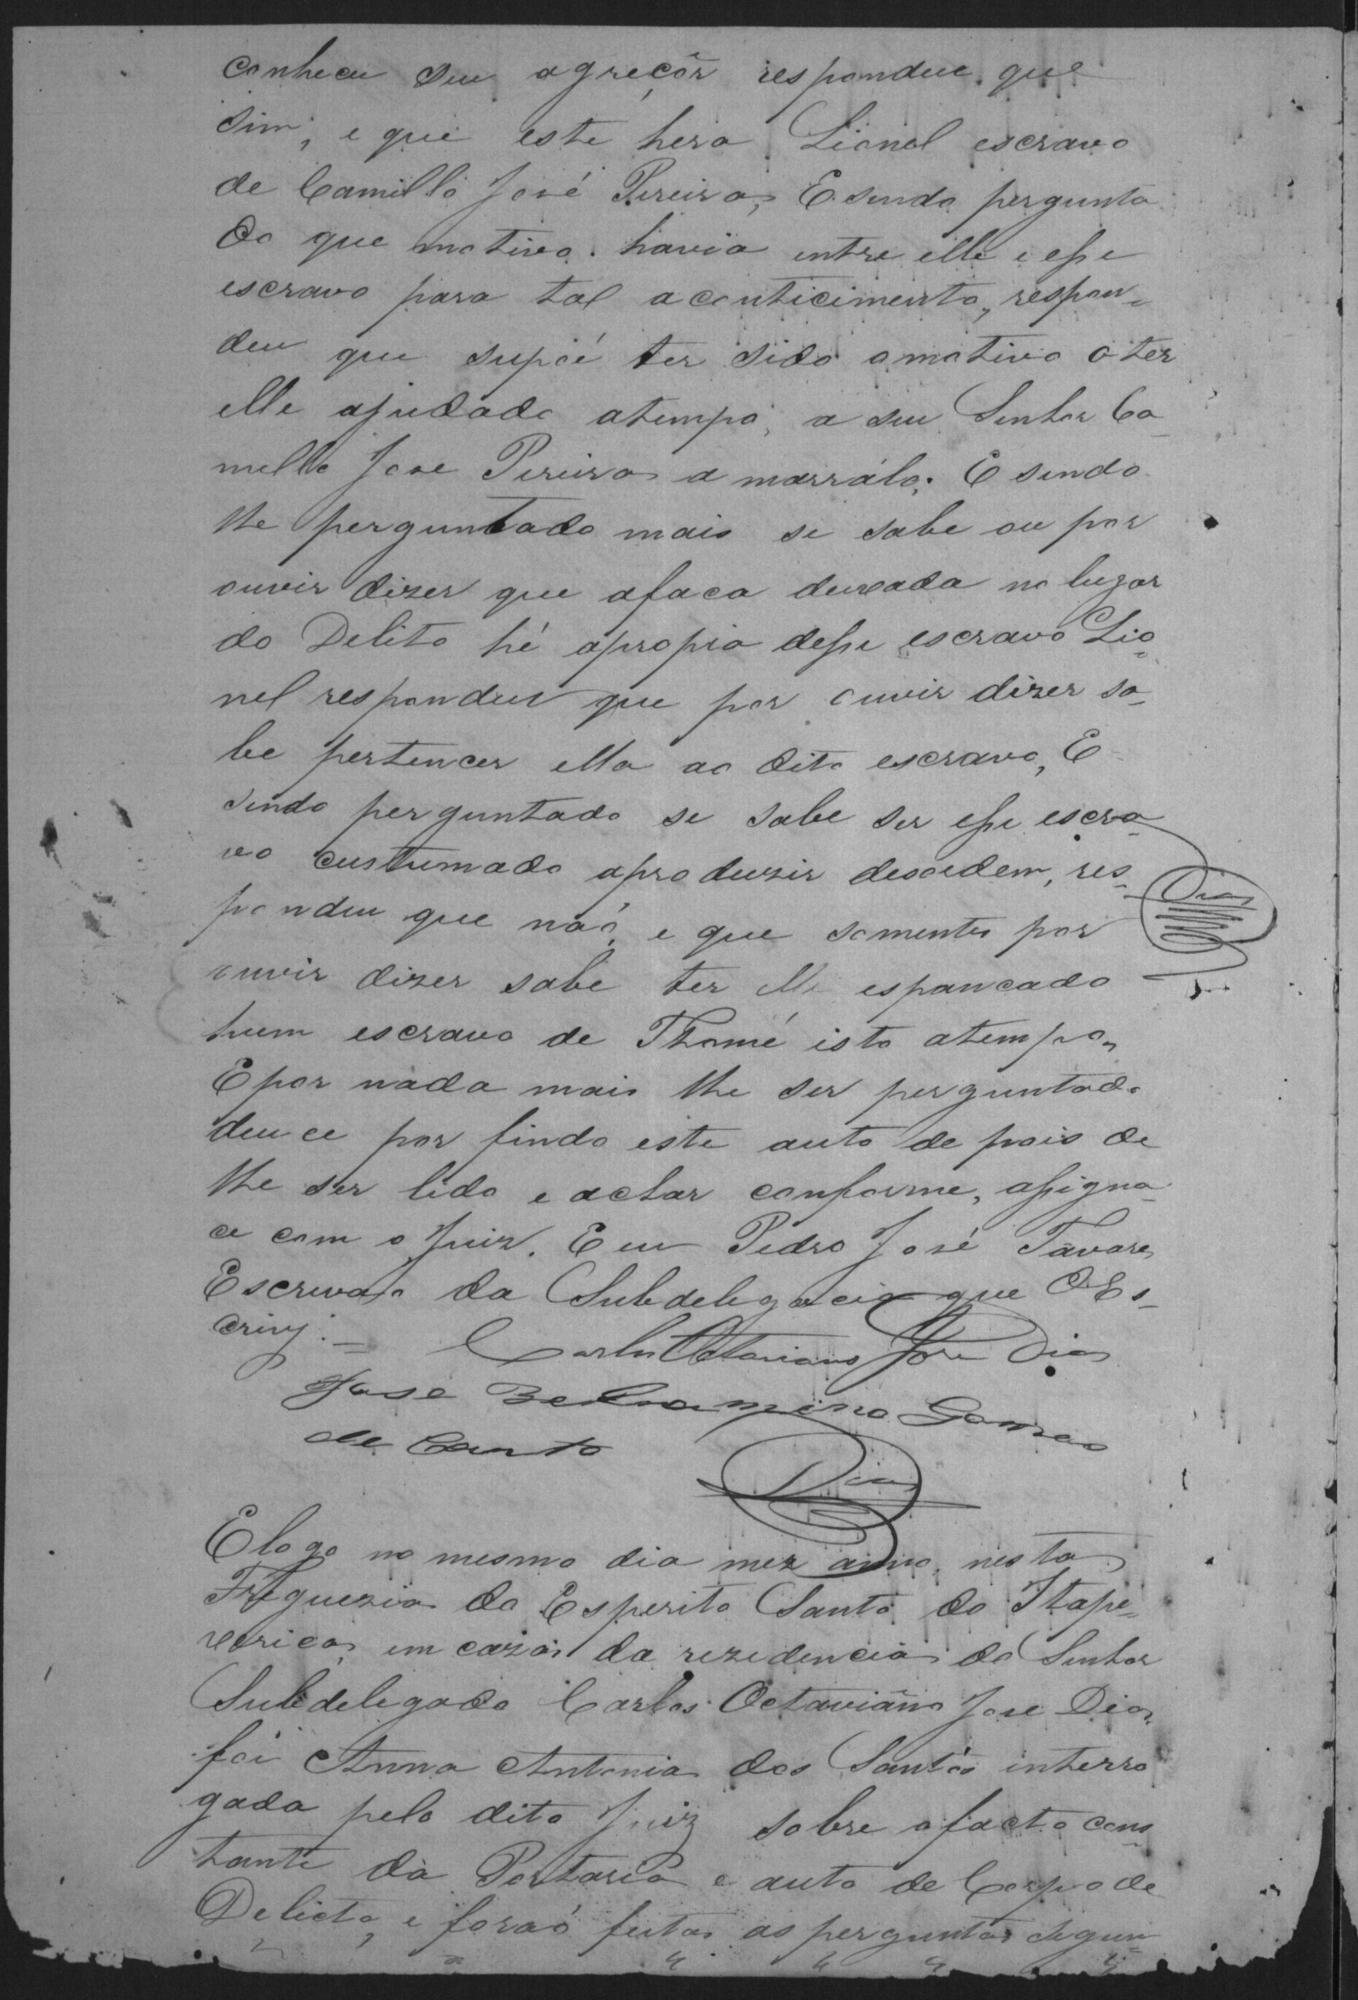 conheceu seu agreçôr respondeu que
sim, e que este hera Lionel escravo
de Camillo José Pereira, E sendo pergunta
do que motivo havia entre elle e esse
escravo para tal aconticimento, respon-
deu que supoé ter sido omotivo o ter
elle ajudado atempo, a seu Senhor Ca-
mello Jose Pereira a marrálo; E sendo
lhe perguntado mais se sabe ou por
ouvir dizer que afaca deixada no lugar
do Delito hé apropia desse escravo Lio-
nel respondeu que por ouvir dizer sa-
be pertencer ella ao dito escravo, E
sendo perguntado se sabe ser esse escra-
vo custumado aproduzir desordem, res-
pondeu que naó, e que somente por
ouvir dizer sabe ter elle espancado
hum escravo de Thomé isto atempo,
E por nada mais lhe ser perguntado
deu ce por findo este auto de pois de
lhe ser lido e achar conforme, assigna-
ce com o Juiz. E eu Pedro José Tavares
Escrivaõ da Subdelegacia que O Es-
crivj. =
Carlos Octaviano Jose Dias
Jose Belramino Gomes
de Canto
Dias
Dias
E logo no mesmo dia mez anno, nesta
Freguezia do Esperito Santo do Itape-
cerica, em caza da rezidencia do Senhor
Subdelegado Carlos Octaviano Jose Dias,
foi Anna Antonia dos Santos interro
gada pelo dito Juiz sobre ofacto cons
tante da Portaria e auto de Corpo de
Delicto, e foraó feitas as perguntas segun-